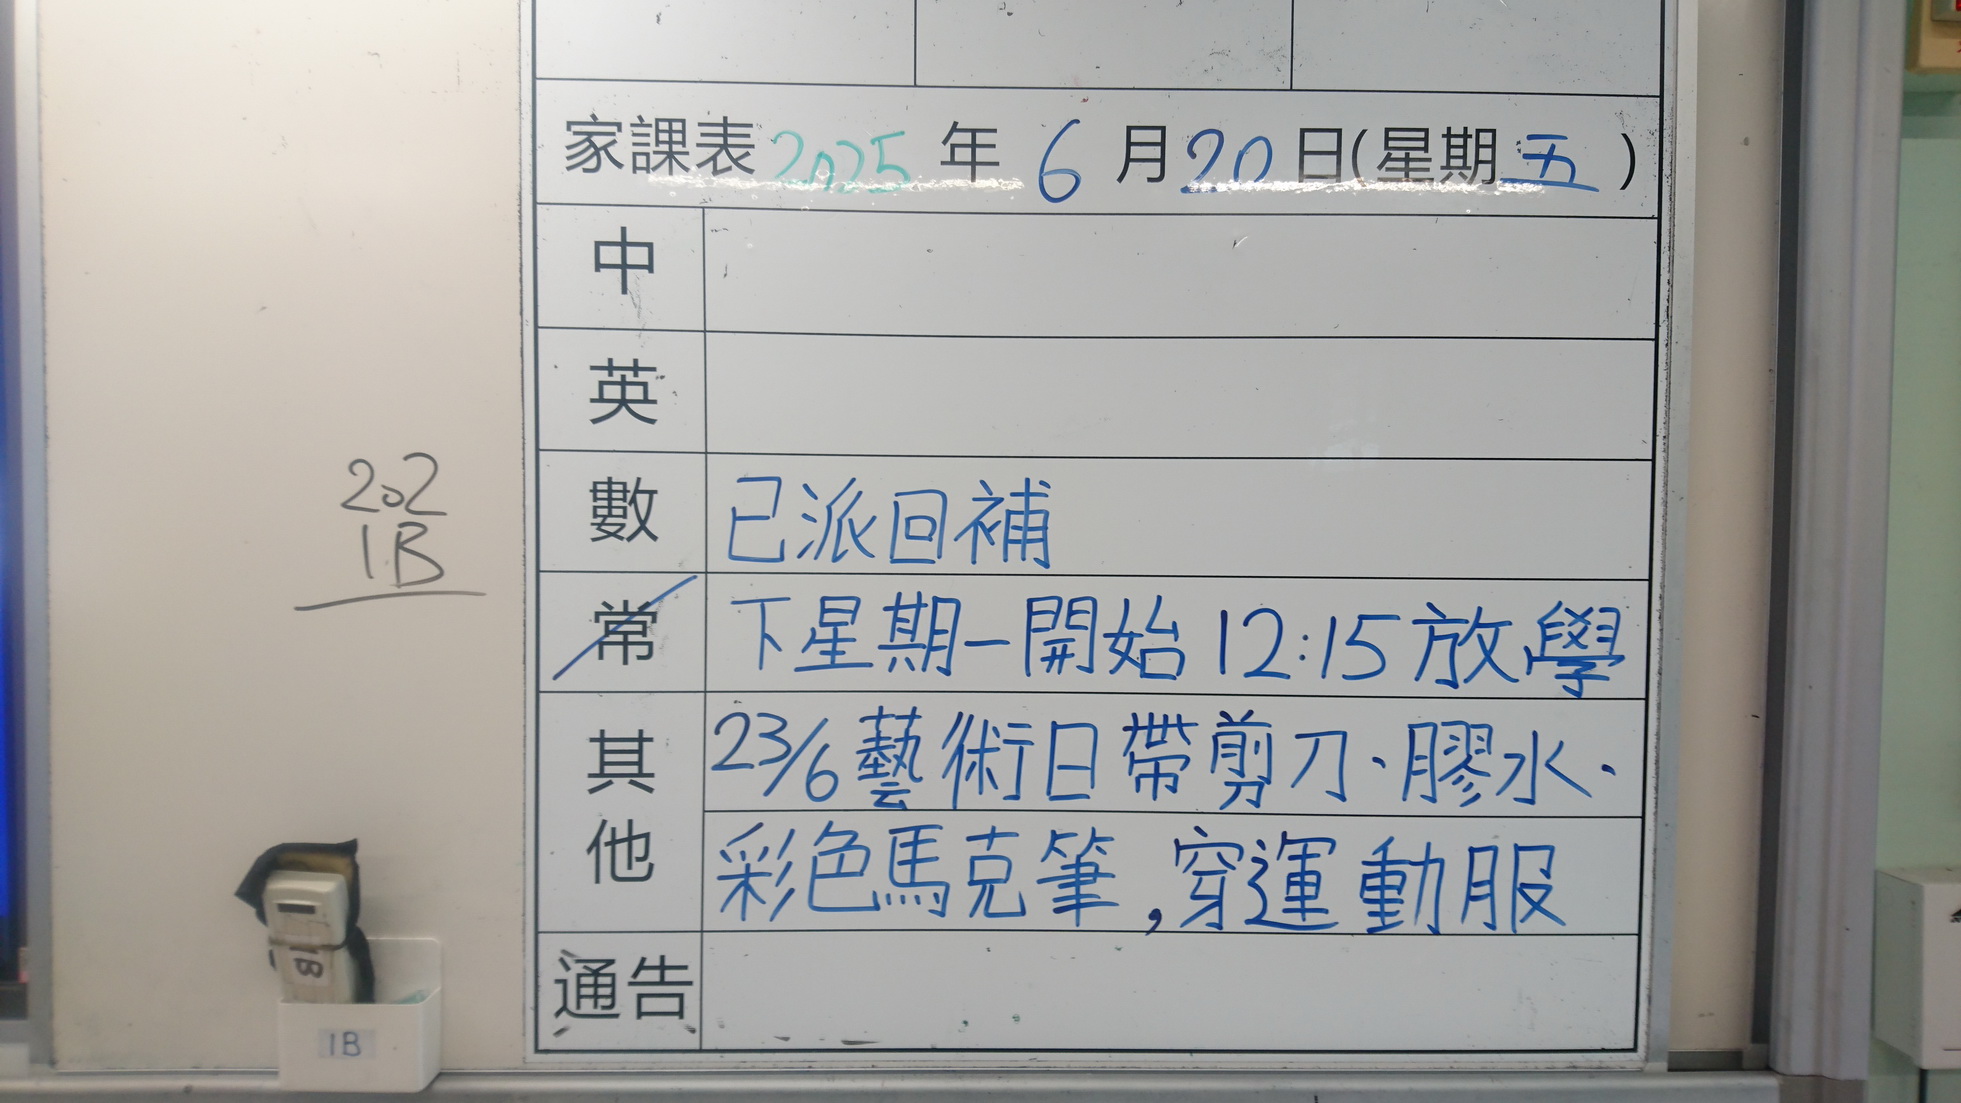 家課表2025年6月20日(星期五)
中
英
數 已派回補
常 下星期一開始12:15放學
其他 23/6藝術日帶剪刀、膠水、
彩色馬克筆,穿運動服
通告
202
1B
1B
1B